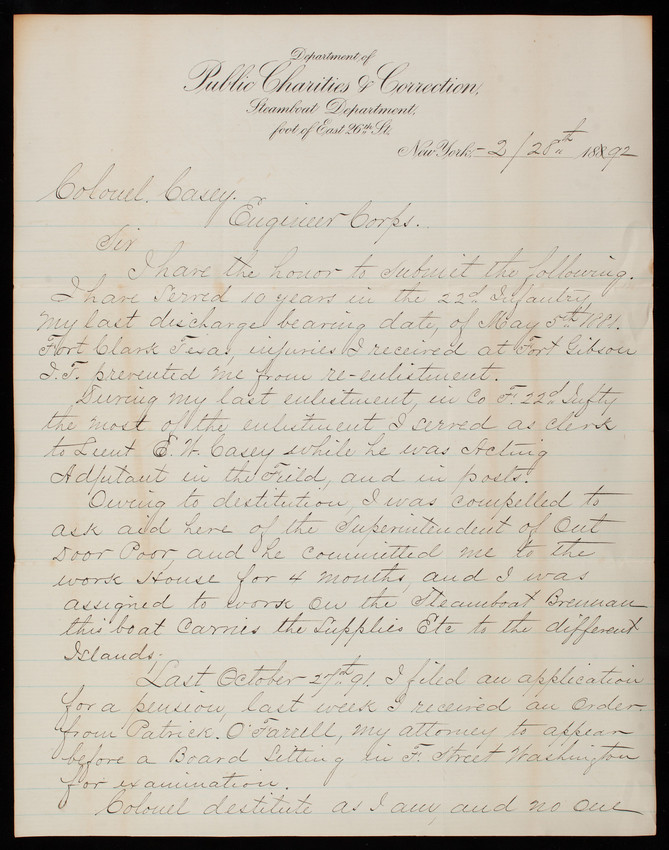 Department of
Public Charities & Correction,
Steamboat Department,
foot of East 26th St.
New York,- 2/28th 1892
Colonel. Casey.
Engineer Corps.
Sir
I have the honor to submit the following.
I have served 10 years in the 22d Infantry
My last discharge bearing date, of May 5th 1881.
Fort Clark Texas, injuries I received at Fort Gibson
I.T. prevented me from re-enlistment.
During my last enlistment, in Co F. 22d Infty
the most of the enlistment I served as clerk
to Lieut E. W. Casey while he was Acting
Adjutant in the Feild, and in posts.
Owing to destitution, I was compelled to
ask aid here of the Superintendent of Out
Door Poor, and he committed me to the
work House for 4 months, and I was
assigned to work on the Steamboat Brennan
this boat Carries the Supplies Etc to the different
Islands.
Last October 27th 91. I filed an application
for a pension, last week I received an Order
from Patrick. O'Farrell, my attorney to appear
before a Board Sitting in F. Street Washington
for examination.
Colonel destitute as I am, and no one